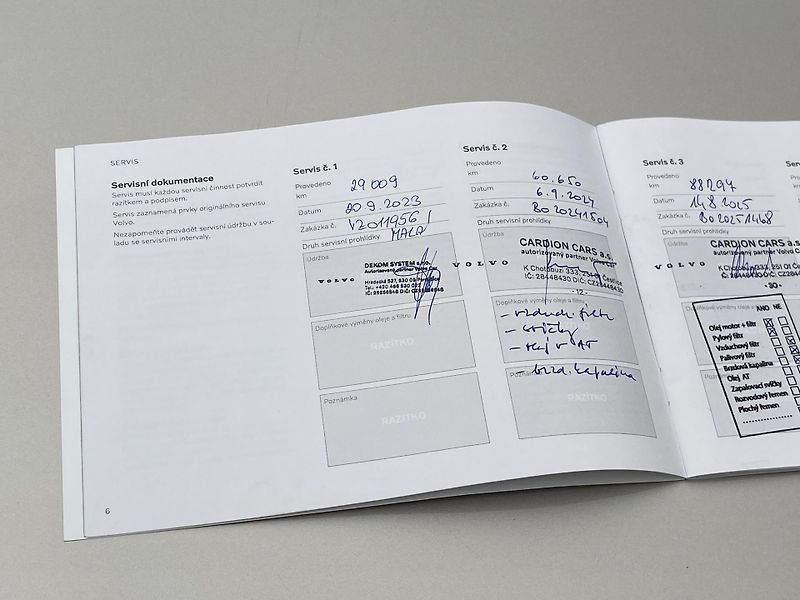 SERVIS
Servisní dokumentace
Servis musí každou servisní činnost potvrdit
razítkem a podpisem.
Servis zaznamená prvky originálního servisu
Volvo.
Nezapomeňte provádět servisní údržbu v sou-
ladu se servisními intervaly.
6
Servis č. 1
Provedeno
km 29 009
Datum 20.9.2023
Zakázka č. V2011956 /
MALÁ
Druh servisní prohlídky
Údržba
VOLVO
DEKOM SYSTEM s.r.o.
Autorizovaný partner Volvo Car
Doplňkové výměny oleje a filtru
RAZÍTKO
Poznámka
RAZÍTKO
Servis č. 2
Provedeno
km 60.650
Datum 6.9.2024
Zakázka č. BO20241504
Druh servisní prohlídky
Údržba
VOLVO
CARDION CARS a.s.
autorizovaný partner Volvo Car
K Chotobuzi 333,
IČ: 28448430 DIČ: CZ28448430
- 12 -
Doplňkové výměny oleje a filtru
- vzduch. filtr
- svíčky
- olej v AT
- brzd. kapalina
Poznámka
RAZÍTKO
Servis č. 3
Provedeno
km 88294
Datum 14.8.2025
Zakázka č. BO20251468
Druh servisní prohlídky
Údržba
VOLVO
CARDION CARS a.s.
autorizovaný partner Volvo Car
K Chotobuzi 333, 251 01
IČ: 28448430 DIČ: CZ284
- 30 -
ANO NE
Olej motor + filtr
Pylový filtr
Vzduchový filtr
Palivový filtr
Brzdová kapalina
Olej AT
Zapalovací svíčky
Rozvodový řemen
Plochý řemen